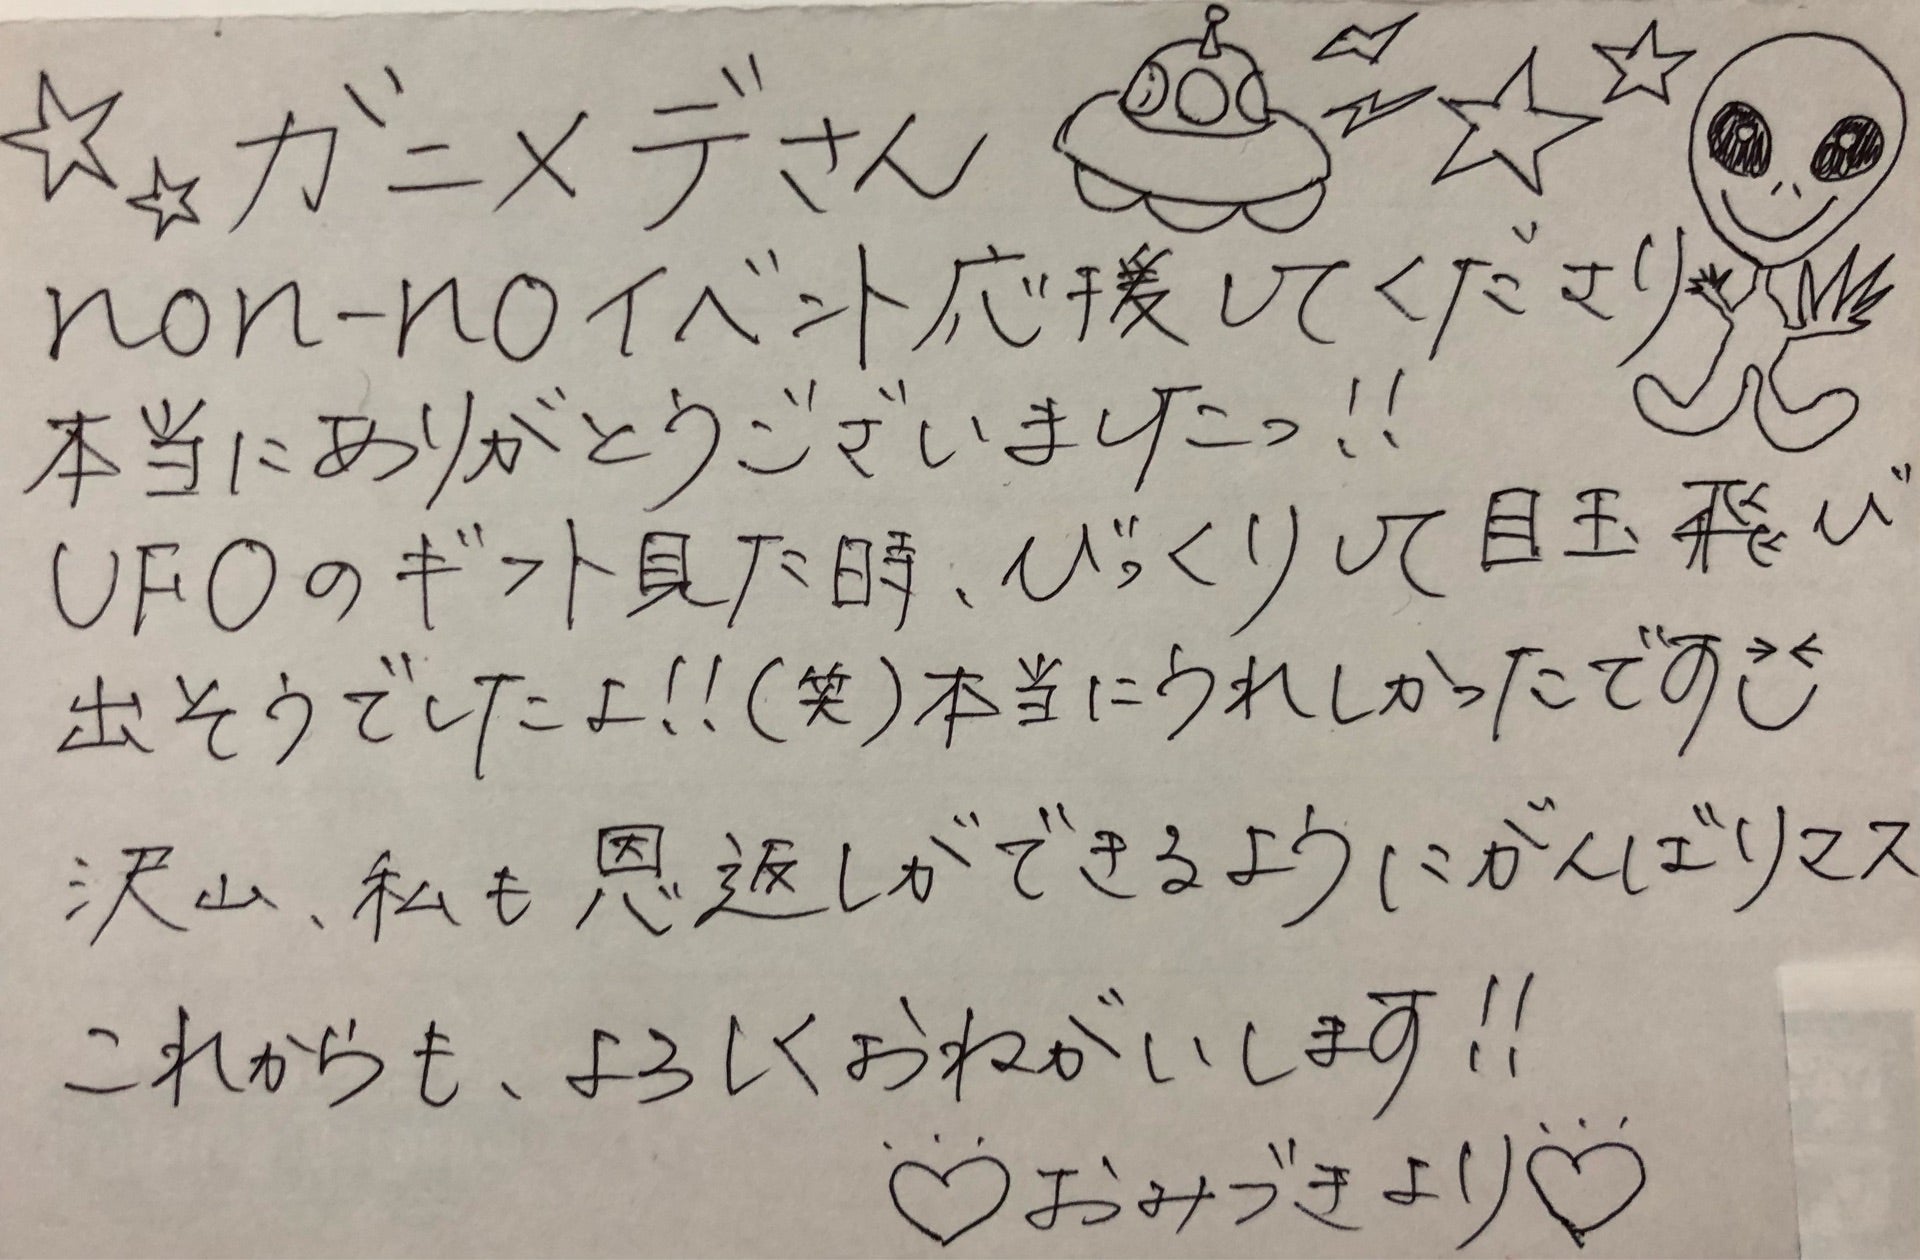 ガニメデさん
non-noイベント応援してくださり
本当にありがとうございましたっ!!
UFOのギフト見た時、びっくりして目玉飛び
出そうでしたよ!!(笑)本当にうれしかったです
沢山、私も恩返しができるようにがんばりマス
これからも、よろしくおねがいします!!
♡おみづきより♡